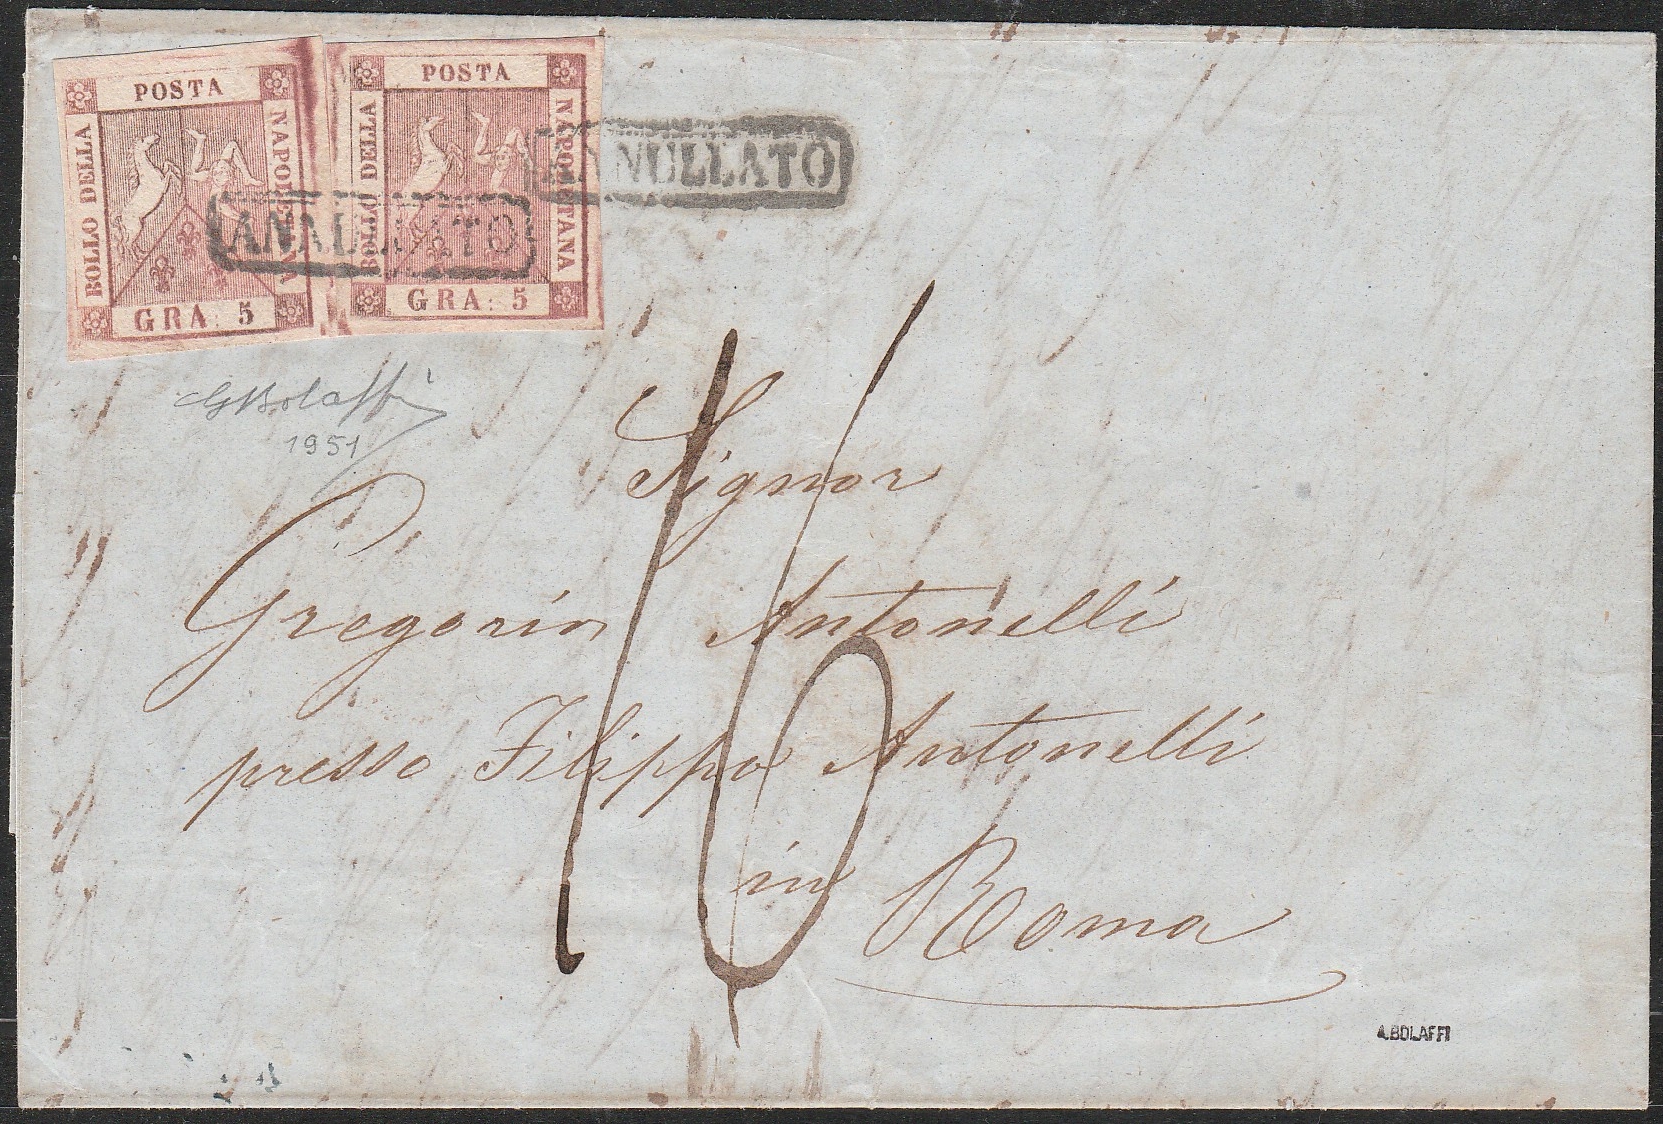 POSTA
BOLLO DELLA
NAPOLETANA
GRA. 5
POSTA
BOLLO DELLA
NAPOLETANA
GRA. 5
ANNULLATO
ANNULLATO
GBolaffi
1951
16
Signor
Gregorio Antonelli
presso Filippo Antonelli
in Roma
A.BOLAFFI